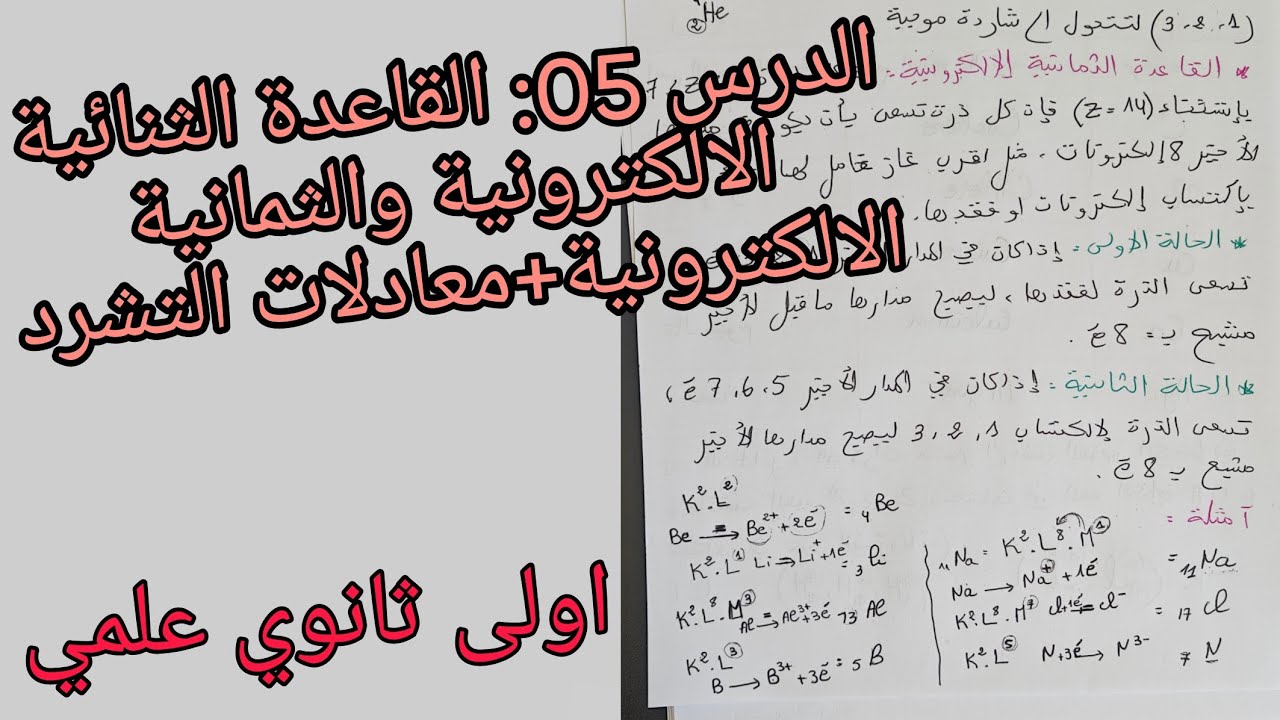 الدرس 05: القاعدة الثنائية
الالكترونية والثمانية
الالكترونية+معادلات التشرد
اولى ثانوي علمي
₂He
(3،2،1) لتتحول إلى شاردة موجبة
* القاعدة الثمانية الالكترونية:
بإستثناء (Z=14) فإن كل ذرة تسعى بأن يكون
الأخير 8 إلكترونات، مثل اقرب غاز خامل لها
بإكتساب إلكترونات او فقدها.
* الحالة الاولى: إذا كان في المدار
تسعى الذرة لفقدها، ليصبح مدارها ما قبل الأخير
متشبع بـ = 8 e⁻.
* الحالة الثانية: إذا كان في المدار الأخير 5، 6، 7 e⁻،
تسعى الذرة لإكتساب 1، 2، 3 ليصبح مدارها الأخير
مشبع بـ 8 e⁻.
أمثلة:
₁₁Na = K².L⁸.M¹
Na → Na⁺ + 1e⁻
= ₁₁Na
K².L⁸.M⁷ Cl+1e⁻ = Cl⁻ = ₁₇Cl
K².L⁵ N+3e⁻ → N³⁻ = ₇N
K².L²
Be → Be²⁺ + 2e⁻ = ₄Be
K².L¹ Li → Li⁺ + 1e⁻ = ₃Li
K².L⁸.M³ = Al → Al³⁺ + 3e⁻ ₁₃Al
K².L³
B → B³⁺ + 3e⁻ = ₅B